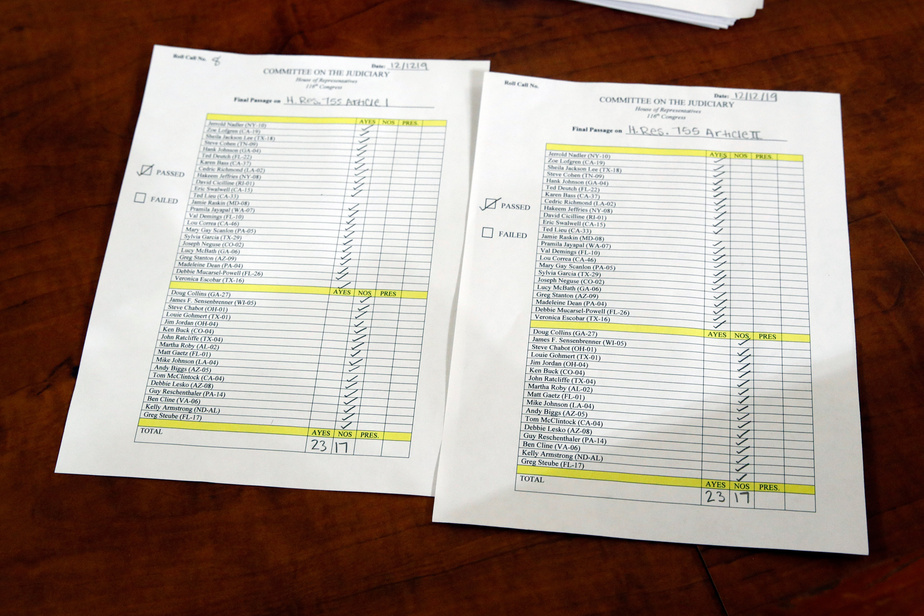 Roll Call No. 8
Date: 12/12/19
COMMITTEE ON THE JUDICIARY
House of Representatives
116th Congress
Final Passage on H. Res. 755 Article I
PASSED
FAILED
AYES NOS PRES.
Jerrold Nadler (NY-10)
Zoe Lofgren (CA-19)
Sheila Jackson Lee (TX-18)
Steve Cohen (TN-09)
Hank Johnson (GA-04)
Ted Deutch (FL-22)
Karen Bass (CA-37)
Cedric Richmond (LA-02)
Hakeem Jeffries (NY-08)
David Cicilline (RI-01)
Eric Swalwell (CA-15)
Ted Lieu (CA-33)
Jamie Raskin (MD-08)
Pramila Jayapal (WA-07)
Val Demings (FL-10)
Lou Correa (CA-46)
Mary Gay Scanlon (PA-05)
Sylvia Garcia (TX-29)
Joseph Neguse (CO-02)
Lucy McBath (GA-06)
Greg Stanton (AZ-09)
Madeleine Dean (PA-04)
Debbie Mucarsel-Powell (FL-26)
Veronica Escobar (TX-16)
AYES NOS PRES.
Doug Collins (GA-27)
James F. Sensenbrenner (WI-05)
Steve Chabot (OH-01)
Louie Gohmert (TX-01)
Jim Jordan (OH-04)
Ken Buck (CO-04)
John Ratcliffe (TX-04)
Martha Roby (AL-02)
Matt Gaetz (FL-01)
Mike Johnson (LA-04)
Andy Biggs (AZ-05)
Tom McClintock (CA-04)
Debbie Lesko (AZ-08)
Guy Reschenthaler (PA-14)
Ben Cline (VA-06)
Kelly Armstrong (ND-AL)
Greg Steube (FL-17)
AYES NOS PRES.
TOTAL 23 17
Roll Call No.
Date: 12/12/19
COMMITTEE ON THE JUDICIARY
House of Representatives
116th Congress
Final Passage on H. Res. 755 Article II
PASSED
FAILED
AYES NOS PRES.
Jerrold Nadler (NY-10)
Zoe Lofgren (CA-19)
Sheila Jackson Lee (TX-18)
Steve Cohen (TN-09)
Hank Johnson (GA-04)
Ted Deutch (FL-22)
Karen Bass (CA-37)
Cedric Richmond (LA-02)
Hakeem Jeffries (NY-08)
David Cicilline (RI-01)
Eric Swalwell (CA-15)
Ted Lieu (CA-33)
Jamie Raskin (MD-08)
Pramila Jayapal (WA-07)
Val Demings (FL-10)
Lou Correa (CA-46)
Mary Gay Scanlon (PA-05)
Sylvia Garcia (TX-29)
Joseph Neguse (CO-02)
Lucy McBath (GA-06)
Greg Stanton (AZ-09)
Madeleine Dean (PA-04)
Debbie Mucarsel-Powell (FL-26)
Veronica Escobar (TX-16)
AYES NOS PRES.
Doug Collins (GA-27)
James F. Sensenbrenner (WI-05)
Steve Chabot (OH-01)
Louie Gohmert (TX-01)
Jim Jordan (OH-04)
Ken Buck (CO-04)
John Ratcliffe (TX-04)
Martha Roby (AL-02)
Matt Gaetz (FL-01)
Mike Johnson (LA-04)
Andy Biggs (AZ-05)
Tom McClintock (CA-04)
Debbie Lesko (AZ-08)
Guy Reschenthaler (PA-14)
Ben Cline (VA-06)
Kelly Armstrong (ND-AL)
Greg Steube (FL-17)
AYES NOS PRES.
TOTAL 23 17